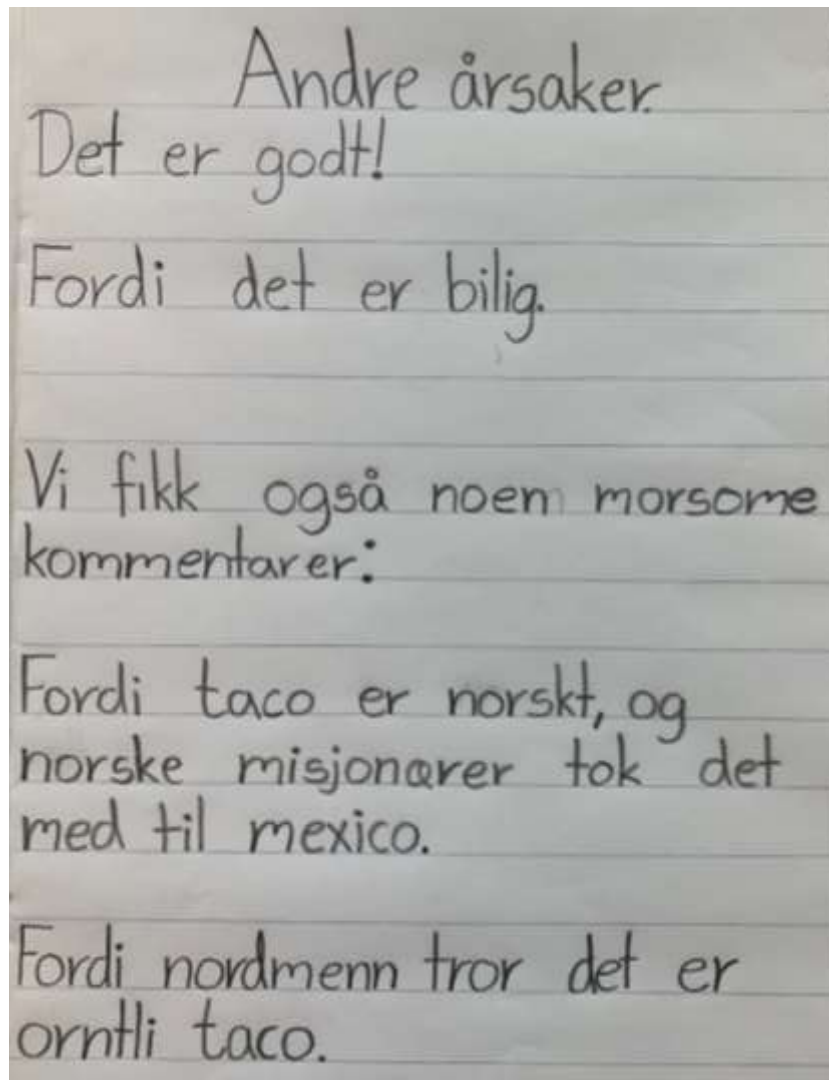 Andre årsaker.
Det er godt!
Fordi det er bilig.
Vi fikk også noen morsome
kommentarer:
Fordi taco er norskt, og
norske misjonærer tok det
med til mexico.
Fordi nordmenn tror det er
orntli taco.